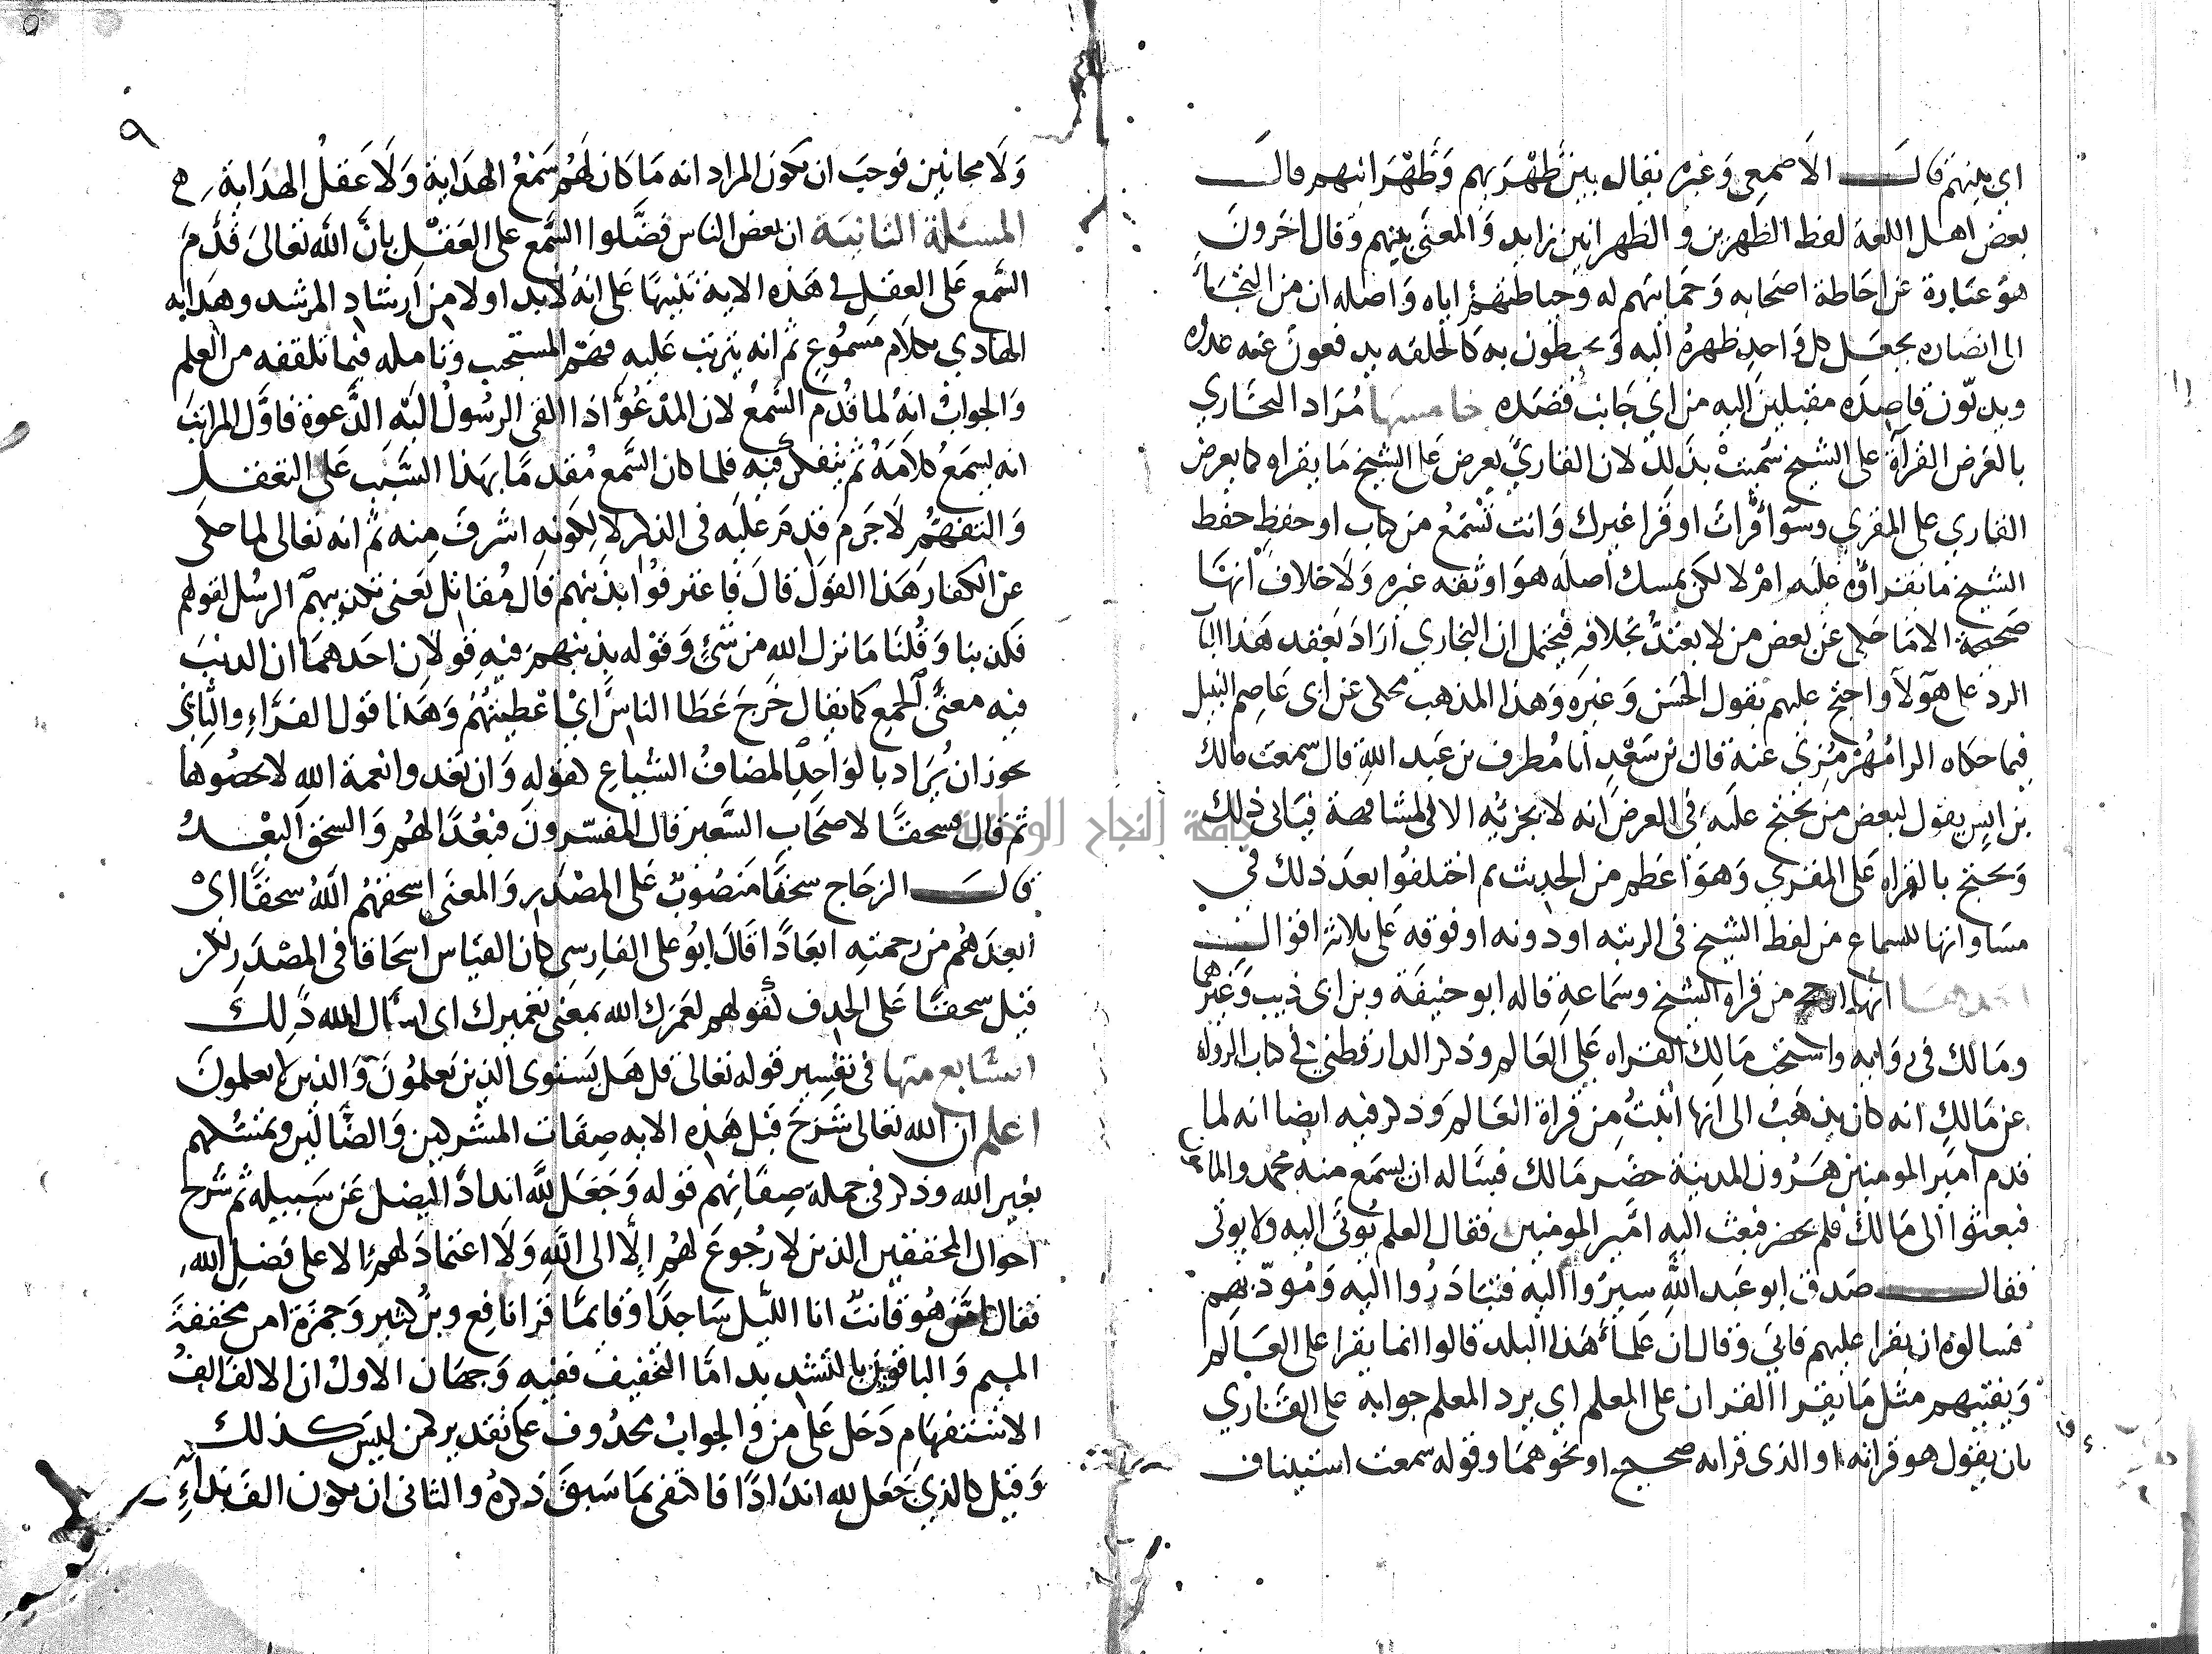 اي بينهم قال الاصمعي وغيره يقال بين ظهريهم وظهرانيهم قال
بعض اهل اللغة لفظ الظهرين والظهرانين زايد والمعنى بينهم وقال اخرون
هو عبارة عن احاطة اصحابه وحمايتهم له وحياطتهم اياه واصله ان من التجا
الى انصاره يجعل كل واحد ظهره اليه ويحيطون به كالحلقه يدفعون عنه عدوه
ويدبون قاصده مقبلين اليه من اي جانب قصده خامسها مراد البخاري
بالعرض القرآة على الشيخ سميت بذلك لان القاري يعرض على الشيخ ما يقراه كما يعرض
القاري على المقري وسوآ قرأت او قرا غيرك وانت تسمع من كتاب او حفظ حفظ
الشيخ ما تقرأه عليه ام لا لكن يمسك اصله هو او ثقه غيره ولا خلاف انها
صحيحة الا ما حكي عن بعض من لا يعتد بخلافه فيحتمل ان البخاري اراد بعقد هذا البا
الرد على هولآ واحتج عليهم بقول الحسن وغيره وهذا المذهب محكي عن ابي عاصم النبيل
فيما حكاه الرامهرمزي عنه قال بن سعد انا مطرف بن عبد الله قال سمعت مالك
بن انس يقول لبعض من يحتج عليه في العرض انه لا يجزيه الا المشافهة فيابى ذلك
ويحتج بالقراه على المقري وهو اعظم من الحديث ثم اختلفوا بعد ذلك في
مساواتها للسماع من لفظ الشيخ في الرتبه او دونه او فوقه على ثلاثة اقوال
احدهـا انها ارجح من قراه الشيخ وسماعه قاله ابو حنيفة وبن ابي ذيب وغيرهما
ومالك في روايه واستحب مالك القراه على العالم وذكر الدارقطني في كتاب الرواه
عن مالك انه كان يذهب الى انها اثبت من قراة العالم وذكر فيه ايضا انه لما
قدم امير المومنين هرون المدينة حضر مالك فساله ان يسمع منه محمد والمامون
فبعثوا الى مالك فلم يحضر فبعث اليه امير المومنين فقال العلم يوتى اليه ولا يوتي
فقال صدق ابو عبد الله سيروا اليه فتبادروا اليه ومودبهم
فسالوه ان يقرا عليهم فابى وقال ان علمآ هذا البلد قالوا انما يقرا على العالم
ويفتيهم مثل ما يقرا القران على المعلم اي يرد المعلم جوابه على القاري
بان يقول هو قراته او الذي قراته صحيح او نحوهما وقوله سمعت استيناف
٩
ولا مجانين فوجب ان يكون المراد انه ما كان لهم سمع الهداية ولا عقل الهداية
المسئلة الثانية ان بعض الناس فضلوا السمع على العقل بان الله تعالى قدم
السمع على العقل في هذه الايه تنبيها على انه لا بد اولا من ارشاد المرشد وهدايه
الهادي بكلام مسموع ثم انه يترتب عليه فهم المستجب وتامله فيما تلقفه من العلم
والجواب انه لما قدم السمع لان المدعو اذا القى الرسول اليه الدعوة فاول المراتب
انه يسمع كلامه ثم يتفكر فيه فلما كان السمع مقدما بهذا السبب على التعقل
والتفهم لا جرم قدم عليه في الذكر لا لكونه اشرف منه ثم انه تعالى لما حكى
عن الكفار هذا القول قال فاعترفوا بذنبهم قال مقاتل يعني تكذيبهم الرسل لقولهم
فكذبنا وقلنا ما نزل الله من شئ وقوله بذنبهم فيه قولان احدهما ان الذنب
فيه معنى الجمع كما يقال خرج عطا الناس اي اعطيتهم وهذا قول الفراء والثاني
يجوز ان يراد بالواحد المضاف الشياع لقوله وان تعدوا نعمة الله لا تحصوها
ثم قال فسحقا لاصحاب السعير قال المفسرون فبعدا لهم والسحق البعد
قال الزجاج سحقا منصوب على المصدر والمعنى اسحقهم الله سحقا اي
ابعدهم من رحمته ابعادا قال ابو علي الفارسي كان القياس اسحاقا في المصدر لكن
قيل سحقا على الحذف لقولهم لعمرك الله بمعنى تعميرك اي اسأل الله ذلك
السابع منها في تفسير قوله تعالى قل هل يستوي الذين يعلمون والذين لا يعلمون
اعلم ان الله تعالى شرح قبل هذه الايه صفات المشركين والضالين وتمسكهم
بغير الله وذكر في جملة صفاتهم قوله وجعل لله اندادا ليضل عن سبيله ثم شرح
احوال المحققين الذين لا رجوع لهم الا الى الله ولا اعتماد لهم الا على فضل الله
فقال امن هو قانت انا الليل ساجدا وقايما قرا نافع وبن كثير وحمزة امن مخففة
الميم والباقون بالتشديد اما التخفيف ففيه وجهان الاول ان الالف الف
الاستفهام دخل على من والجواب محذوف على تقدير كمن ليس كذلك
وقيل كالذي جعل لله اندادا فاكتفى بما سبق ذكره والثاني ان يكون الف نداء
جامعة النجاح الوطنية